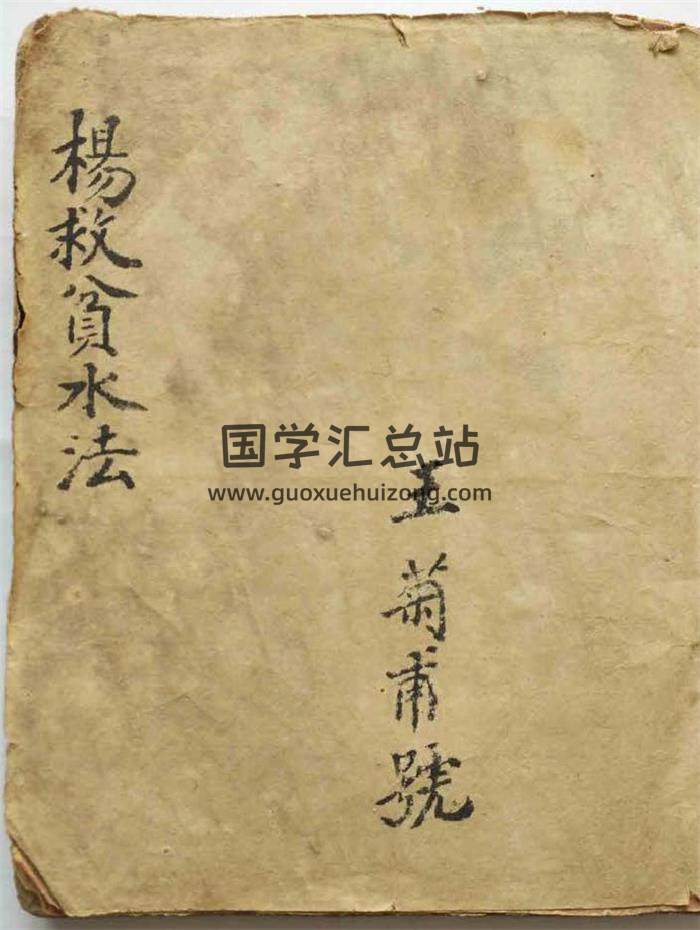 楊救貧水法
国学汇总站
www.guoxuehuizong.com
王菊甫號